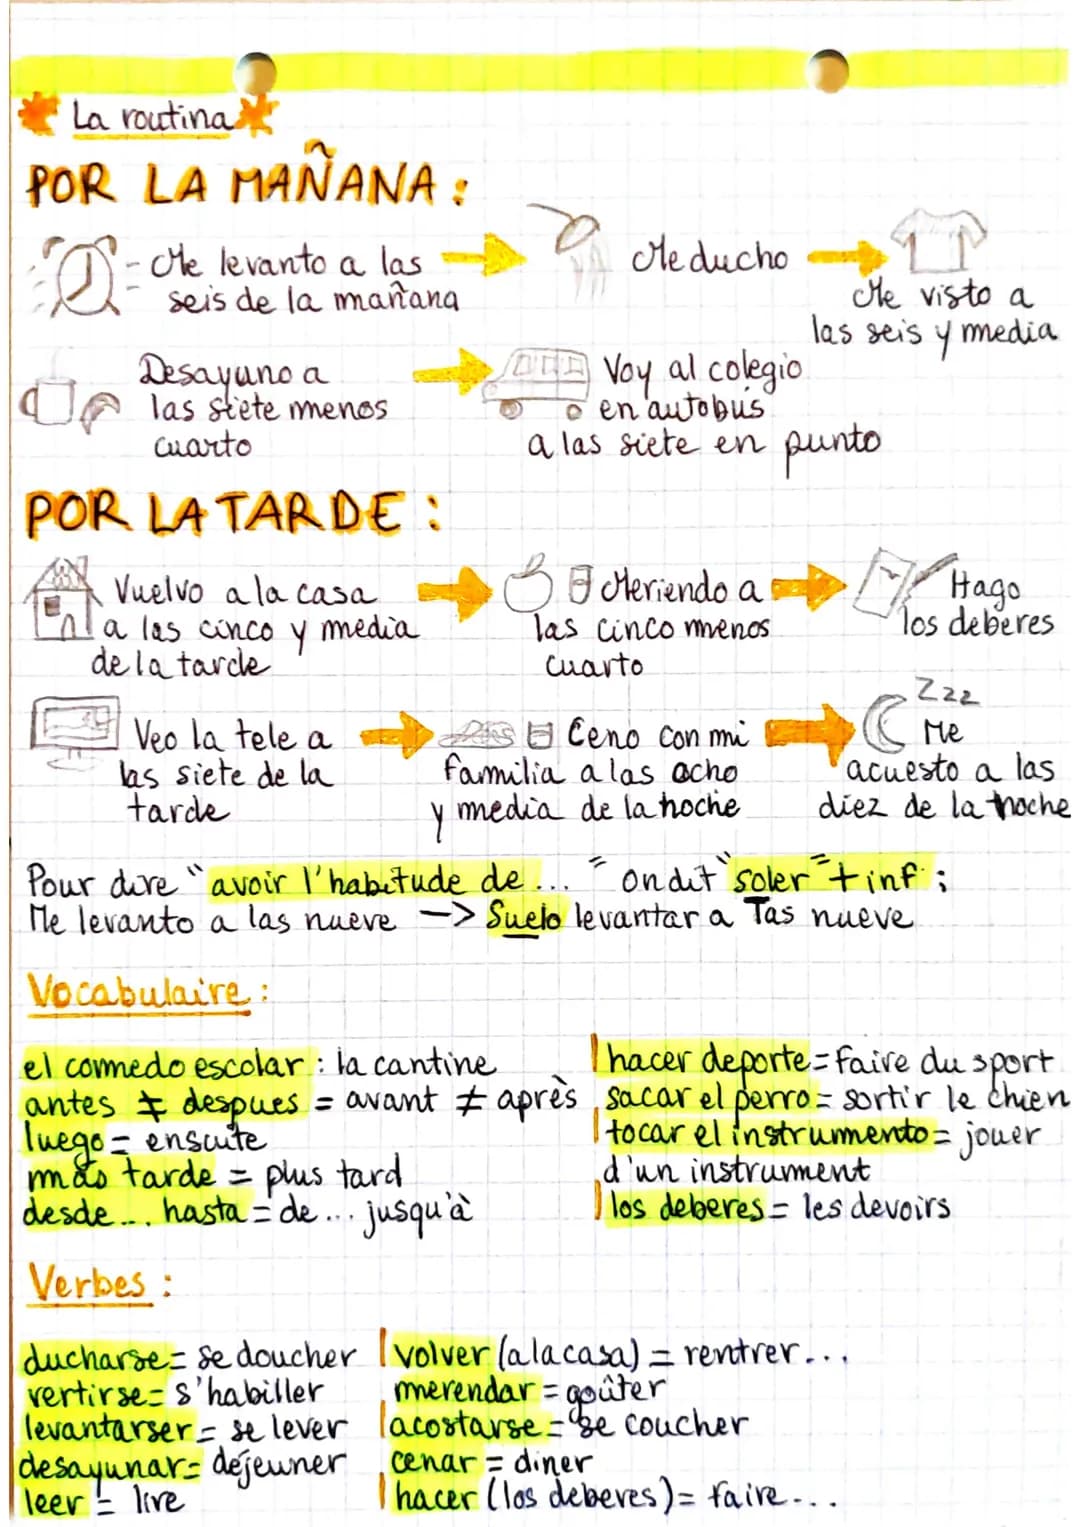 La routina
POR LA MAÑANA :
- Me levanto a las
seis de la mañana
Me ducho
Me visto a
las seis y media
Desayuno a
las siete menos
cuarto
Voy al colegio
en autobus
a las siete en punto
POR LA TARDE :
Vuelvo a la casa
a las cinco y media
de la tarde
Meriendo a
las cinco menos
cuarto
Hago
los deberes
Veo la tele a
las siete de la
tarde
Ceno con mi
familia a las ocho
y media de la noche
Zzz
Me
acuesto a las
diez de la noche
Pour dire "avoir l'habitude de ... " on dit "soler" + inf :
Me levanto a las nueve -> Suelo levantar a las nueve
Vocabulaire :
el comedo escolar : la cantine
antes ≠ despues = avant ≠ après
luego = ensuite
mas tarde = plus tard
desde ... hasta = de ... jusqu'à
hacer deporte = faire du sport
sacar el perro = sortir le chien
tocar el instrumento = jouer
d'un instrument
los deberes = les devoirs
Verbes :
ducharse = se doucher
vertirse = s'habiller
levantarser = se lever
desayunar = déjeuner
leer = lire
volver (a la casa) = rentrer...
merendar = goûter
acostarse = se coucher
cenar = diner
hacer (los deberes) = faire ...